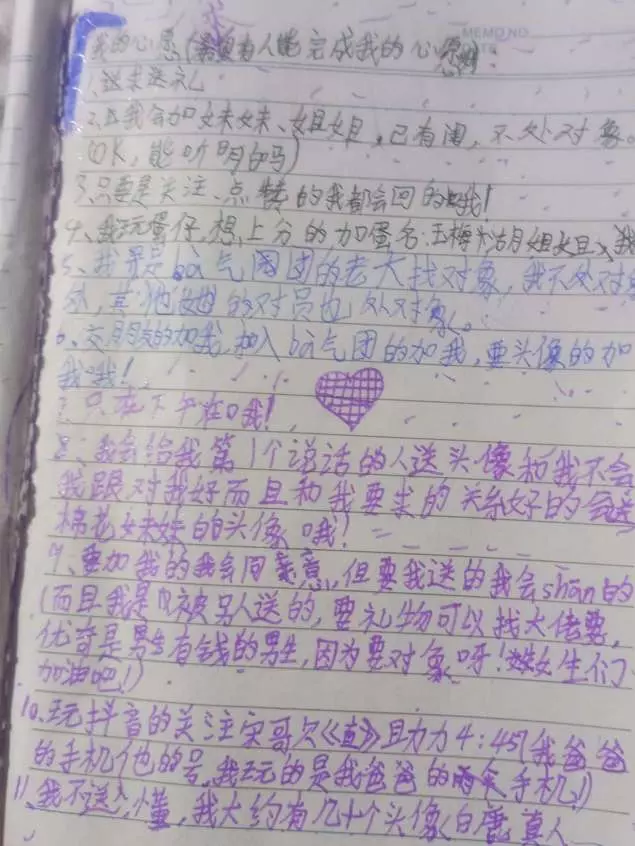 MEMO NO
我的心愿(希望有人能完成我的心愿
1、送求送礼
2、只我会加女未女未、女且女且,已有闺,不处对象。
(OK,能听明白吗)
3、只要是关注、点赞的我都会回的哦!
4、我玩蛋仔,想上分的加蛋名:玉梅 月女且女且、我
5、我是bà气團团的老大找对象,我不处对
象,其他她的对员也处对象。
6、交月月友的加我,加入bà气团的加我,要头像的加
我哦!
7.只在下午在哦!
8、我会给我第1个说话的人送头像和我不会
我跟对我好而且和我要求的关系好的会送
棉花女未妹的头像哦!
9、要加我的我会同意,但要我送的我会shān的
(而且我是 被别人送的,要礼物可以找大佬要,
优奇是男生有钱的男生,因为要对象呀!女生们
加油吧!)
10、玩抖音的关注宋哥欠《直》且力力4:457(我爸爸
的手机他的号,我玩的是我爸爸的 手机!)
11、我不送人懂,我大约有几十个头像(白鹿 真人